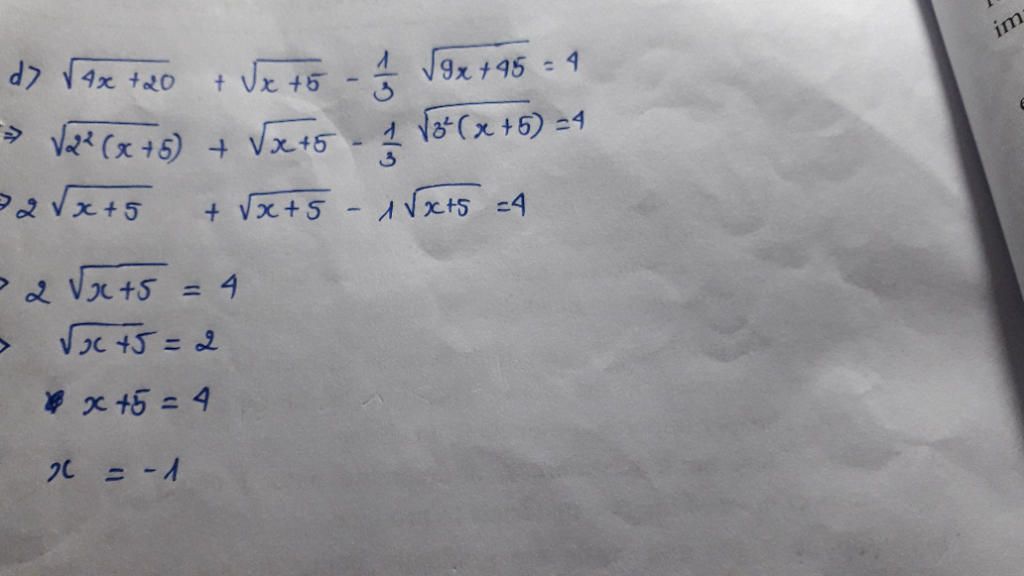 d> √4x+20 + √x+5 - 1/3 √9x+45 = 4
=> √2²(x+5) + √x+5 - 1/3 √3²(x+5) = 4
=> 2√x+5 + √x+5 - 1√x+5 = 4
> 2√x+5 = 4
> √x+5 = 2
x+5 = 4
x = -1